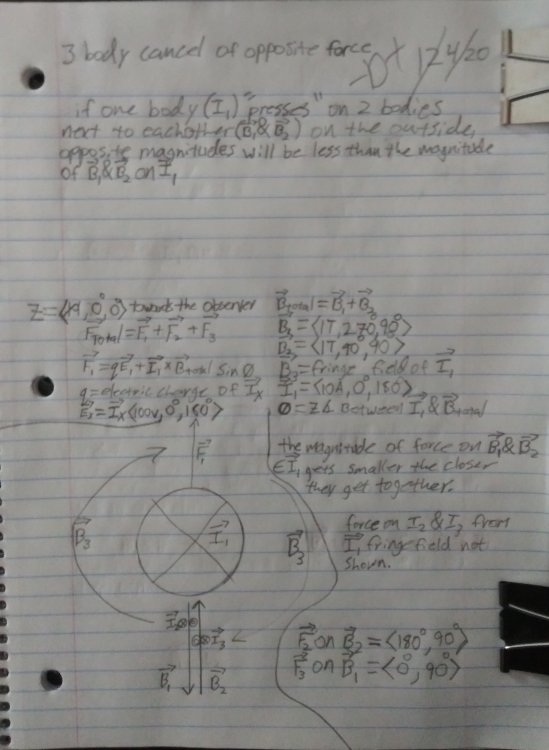 3 body cancel of opposite force
12/4/20
if one body (I⃗₁) "presses" on 2 bodies
next to eachother (B⃗₁ & B⃗₂) on the outside,
opposite magnitudes will be less than the magnitude
of B⃗₁ & B⃗₂ on I⃗₁
Z=⟨M,0°,0°⟩ towards the observer
F⃗Total = F⃗₁ + F⃗₂ + F⃗₃
F⃗₁ = qE⃗₁ + I⃗₁ × B⃗total sin Ø
q = electric charge of I⃗ₓ
E⃗₁ = I⃗ₓ⟨100v, 0°, 180°⟩
B⃗Total = B⃗₁ + B⃗₂
B⃗₁ = ⟨1T, 270, 90°⟩
B⃗₂ = ⟨1T, 90°, 90°⟩
B⃗₃ = fringe field of I⃗₁
I⃗₁ = ⟨10A, 0°, 180°⟩
Ø = Z∡ Between I⃗₁ & B⃗total
the magnitude of force on B⃗₁ & B⃗₂
∈ I⃗₁ gets smaller the closer
they get together.
force on I₂ & I₃ from
I⃗₁ fringe field not
shown.
F⃗₁
B⃗₃
I⃗₁
B⃗₃
I⃗₂
I⃗₃
B⃗₁
B⃗₂
F⃗₂ on B⃗₂ = ⟨180°, 90°⟩
F⃗₃ on B⃗₁ = ⟨0°, 90°⟩